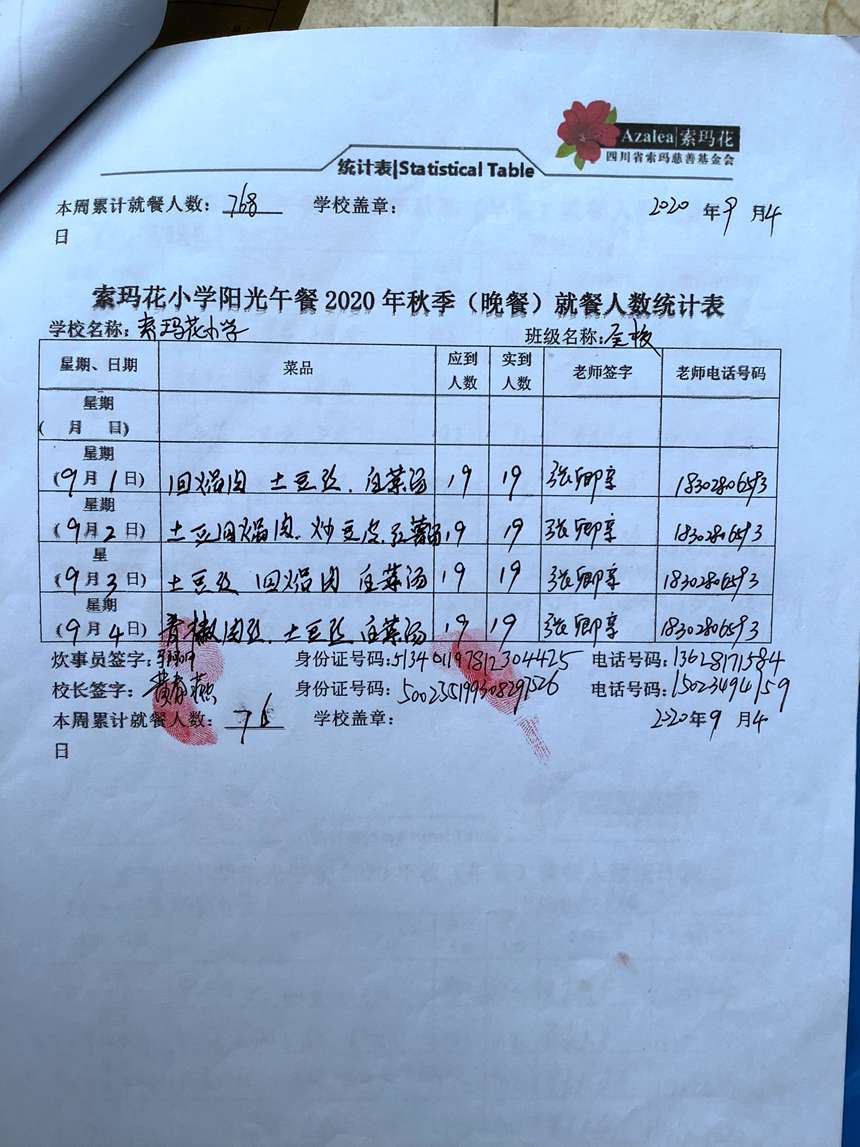 Azalea 索玛花
四川省索玛慈善基金会
统计表|Statistical Table
本周累计就餐人数：768 学校盖章： 2020年9月4
日
索玛花小学阳光午餐2020年秋季（晚餐）就餐人数统计表
学校名称：索玛花小学 班级名称：全校
星期、日期 菜品 应到人数 实到人数 老师签字 老师电话号码
星期
（ 月 日）
星期
（9月1日） 回锅肉 土豆丝、白菜汤 19 19 张卿享 18302806593
星期
（9月2日） 土豆回锅肉、炒豆皮、红薯汤 19 19 张卿享 18302806593
星
（9月3日） 土豆丝 回锅肉 白菜汤 19 19 张卿享 18302806593
星期
（9月4日） 青椒肉丝、土豆丝、白菜汤 19 19 张卿享 18302806593
炊事员签字： 身份证号码：513461197812304425 电话号码：13628171584
校长签字：黄春燕 身份证号码：500235199308291526 电话号码：15023494759
本周累计就餐人数：76 学校盖章： 2020年9月4
日